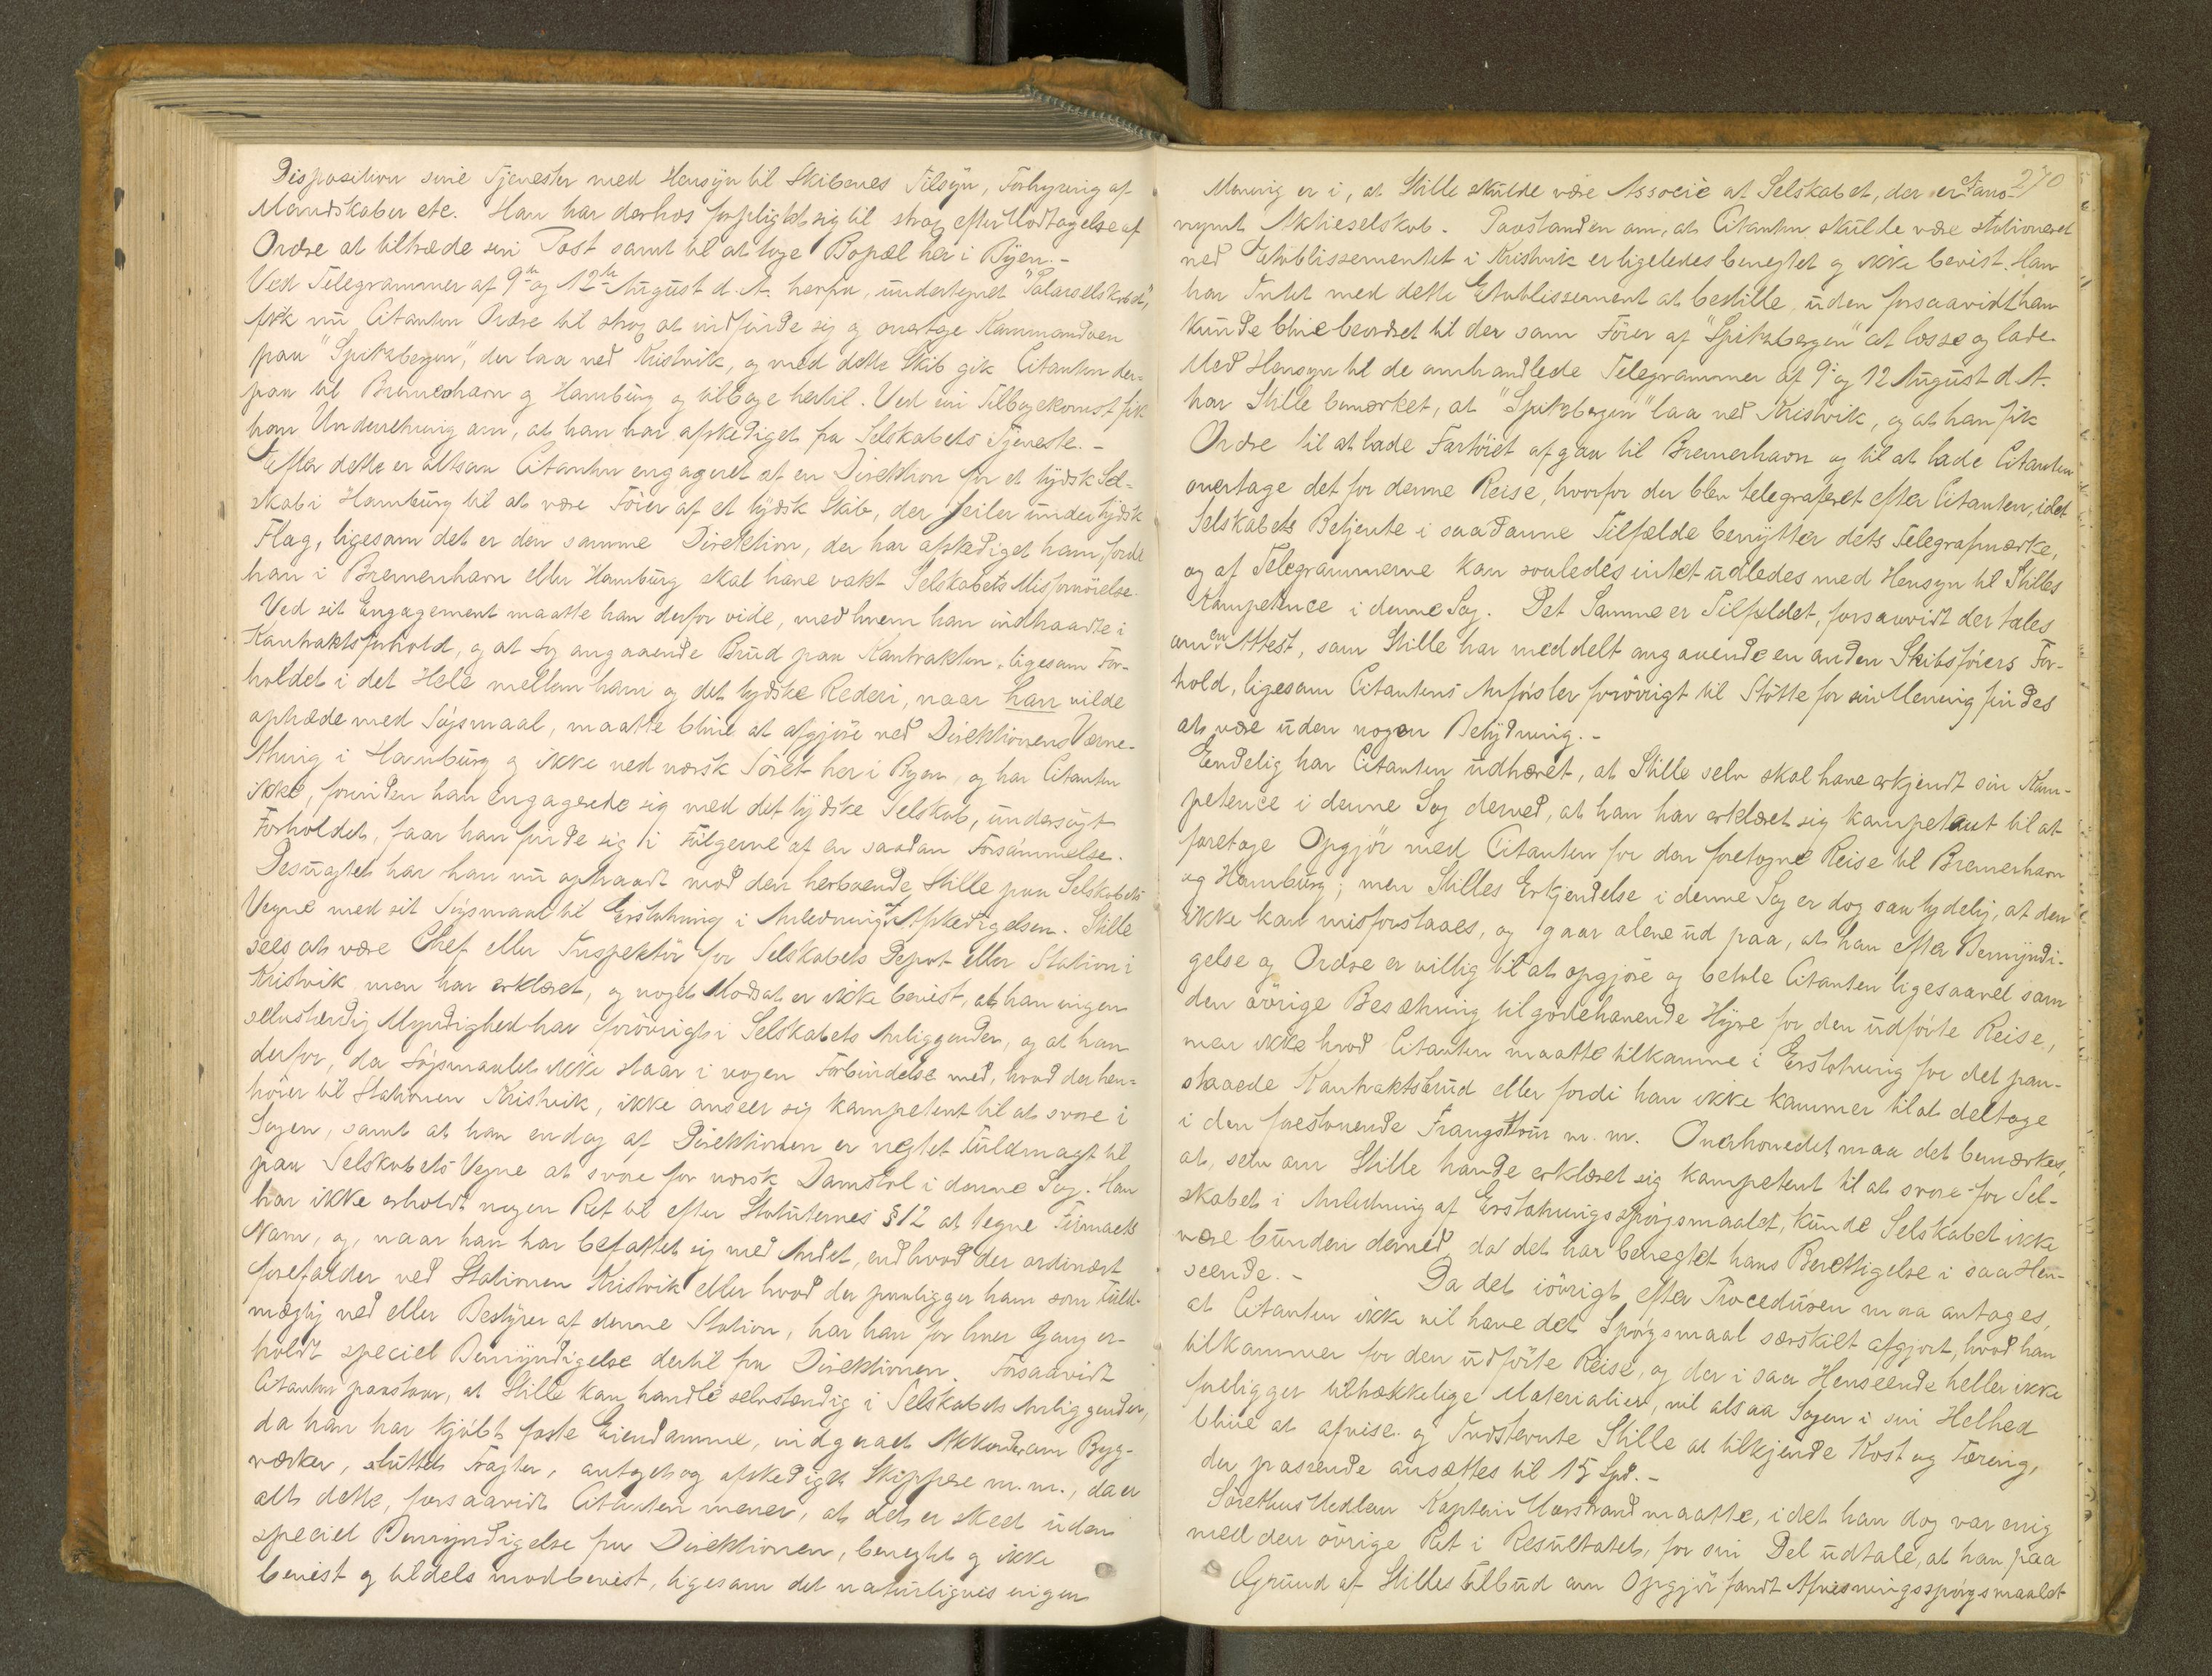 Disposition sine Tjenester med Hensyn til Skibenes Tilsyn, Forhyring af
Mandskaber etc. Han har derhos forpligtet sig til strax efter Modtagelse af
Ordre at tiltræde sin Post samt til at tage Bopæl her i Byen.-
Ved Telegrammer af 9de og 12te August d. A. herfra, undertegnet "Polarselskabet",
fik nu Citanten Ordre til strax at indfinde sig og overtage Kommandoen
paa "Spitzbergen", der laa ved Kristvik, og med dette Skib gik Citanten der-
paa til Bremerhavn og Hamburg og tilbage hertil. Ved sin Tilbagekomst fik
han Underretning om, at han har afskediget fra Selskabets Tjeneste.-
Efter dette er altsaa Citanten engageret af en Direktion for et tydsk Sel-
skab i Hamburg til at være Fører af et tydsk Skib, der seiler under tydsk
Flag, ligesom det er den samme Direktion, der har afskediget ham, fordi
han i Bremenhavn eller Hamburg skal have vakt Selskabets Misfornøielse.
Ved sit Engagement maatte han derfor vide, med hvem han indtraadte i
Kontraktsforhold, og at Sag angaaende Brud paa Kontrakten, ligesom For-
holdet i det Hele mellem ham og det tydske Rederi, naar han vilde
optræde med Søgsmaal, maatte blive at afgjøre ved Direktionens Værne-
thing i Hamburg og ikke ved norsk Søret her i Byen, og har Citanten
ikke, forinden han engagerede sig med det tydske Selskab, undersøgt
Forholdet, faar han finde sig i Følgerne af en saadan Forsømmelse.
Desuagtet har han nu optraadt mod den herboende Stille paa Selskabets
Vegne med sit Søgsmaal til Erstatning i Anledning af Afskedigelsen. Stille
sees at være Chef eller Inspektør for Selskabets Depot eller Station i
Kristvik men har erklæret, og noget Modsat er ikke bevist, at han ingen
selvstændig Myndighed har forøvrigt i Selskabets Anliggender, og at han
derfor, da Søgsmaalet ikke staar i nogen Forbindelse med, hvad der hen-
hører til Stationen Kristvik, ikke anseer sig kompetent til at svare i
Sagen, samt at han endog af Direktionen er negtet Fuldmagt til
paa Selskabets Vegne at svare for norsk Domstol i denne Sag. Han
har ikke erholdt nogen Ret til efter Statuternes § 12 at tegne Firmaets
Navn, og, naar han har befattet sig med Andet, end hvad der ordinært
forefalder ved Stationen Kristvik eller hvad der paaligger ham som Fuld-
mægtig ved eller Bestyrer af denne Station, har han for hver Gang er-
holdt speciel Bemyndigelse dertil fra Direktionen. Forsaavidt
Citanten paastaar, at Stille kan handle selvstændig i Selskabets Anliggender,
da han har kjøbt faste Eiendomme, indgaaet Akkorder om Byg-
værker, sluttet Fragter, antaget og afskediget Skippere m. m., da er
alt dette, forsaavidt Citanten mener, at det er skeet uden
speciel Bemyndigelse fra Direktionen, benegtet og ikke
bevist og tildels modbevist, ligesom det naturligvis ingen
270
Mening er i, at Stille skulde være Associé at Selskabet, der er et ano-
nymt Aktieselskab. Paastanden om, at Citanten skulde være stationeret
ved Etablissementet i Kristvik er ligeledes benegtet og ikke bevist. Han
har Intet med dette Etablissement at bestille, uden forsaavidt han
kunde blive beordret til der som Fører af "Spitzbergen" at losse og lade.
Med Hensyn til de omhandlede Telegrammer af 9. og 12 August d. A.
har Stille bemærket, at "Spitzbergen" laa ved Kristvik, og at han fik
Ordre til at lade Fartøiet afgaa til Bremerhavn og til at lade Citanten
overtage det for denne Reise, hvorfor der blev telegraferet efter Citanten, idet
Selskabets Betjente i saadanne Tilfælde benytter dets Telegrafmærke,
og af Telegrammerne kan saaledes intet udledes med Hensyn til Stilles
Kompetence i denne Sag. Det Samme er Tilfældet, forsaavidt der tales
om en Attest, som Stille har meddelt angaaende en anden Skibsførers For-
hold, ligesom Citantens Anførsler forøvrigt til Støtte for sin Mening findes
at være uden nogen Betydning.-
Endelig har Citanten udhævet, at Stille selv skal have erkjendt sin Kom-
petence i denne Sag derved, at han har erklæret sig kompetent til at
foretage Opgjør med Citanten for den foretagne Reise til Bremerhavn
og Hamburg; men Stilles Erkjendelse i denne Sag er dog saa tydelig, at den
ikke kan misforstaaes, og gaar alene ud paa, at han efter Bemyndi-
gelse og Ordre er villig til at opgjøre og betale Citanten ligesaavel som
den øvrige Besætning tilgodehavende Hyre for den udførte Reise,
men ikke hvad Citanten maatte tilkomme i Erstatning for det paa-
staaede Kontraktsbrud eller fordi han ikke kommer til at deltage
i den forestaaende Fangsttour m. m. Overhovedet maa det bemærkes,
at, selv om Stille havde erklæret sig kompetent til at svare for Sel-
skabet i Anledning af Erstatningsspørgsmaalet, kunde Selskabet ikke
være bunden derved, da det har benegtet hans Berettigelse i saa Hen-
seende.- Da det iøvrigt efter Proceduren maa antages,
at Citanten ikke vil have det Spørgsmaal særskilt afgjort, hvad han
tilkommer for den udførte Reise, og der i saa Henseende heller ikke
foreligger tilstrækkelige Materialier, vil altsaa Sagen i sin Helhed
blive at afvise og Indstevnte Stille at tilkjende Kost og Tæring,
der passende ansættes til 15 Spd.-
Sørettens Medlem Kaptein Marstrand maatte, idet han dog var enig
med den øvrige Ret i Resultatet, for sin Del udtale, at han paa
Grund af Stilles Tilbud om Opgjør fandt Afvisningsspørgsmaalet